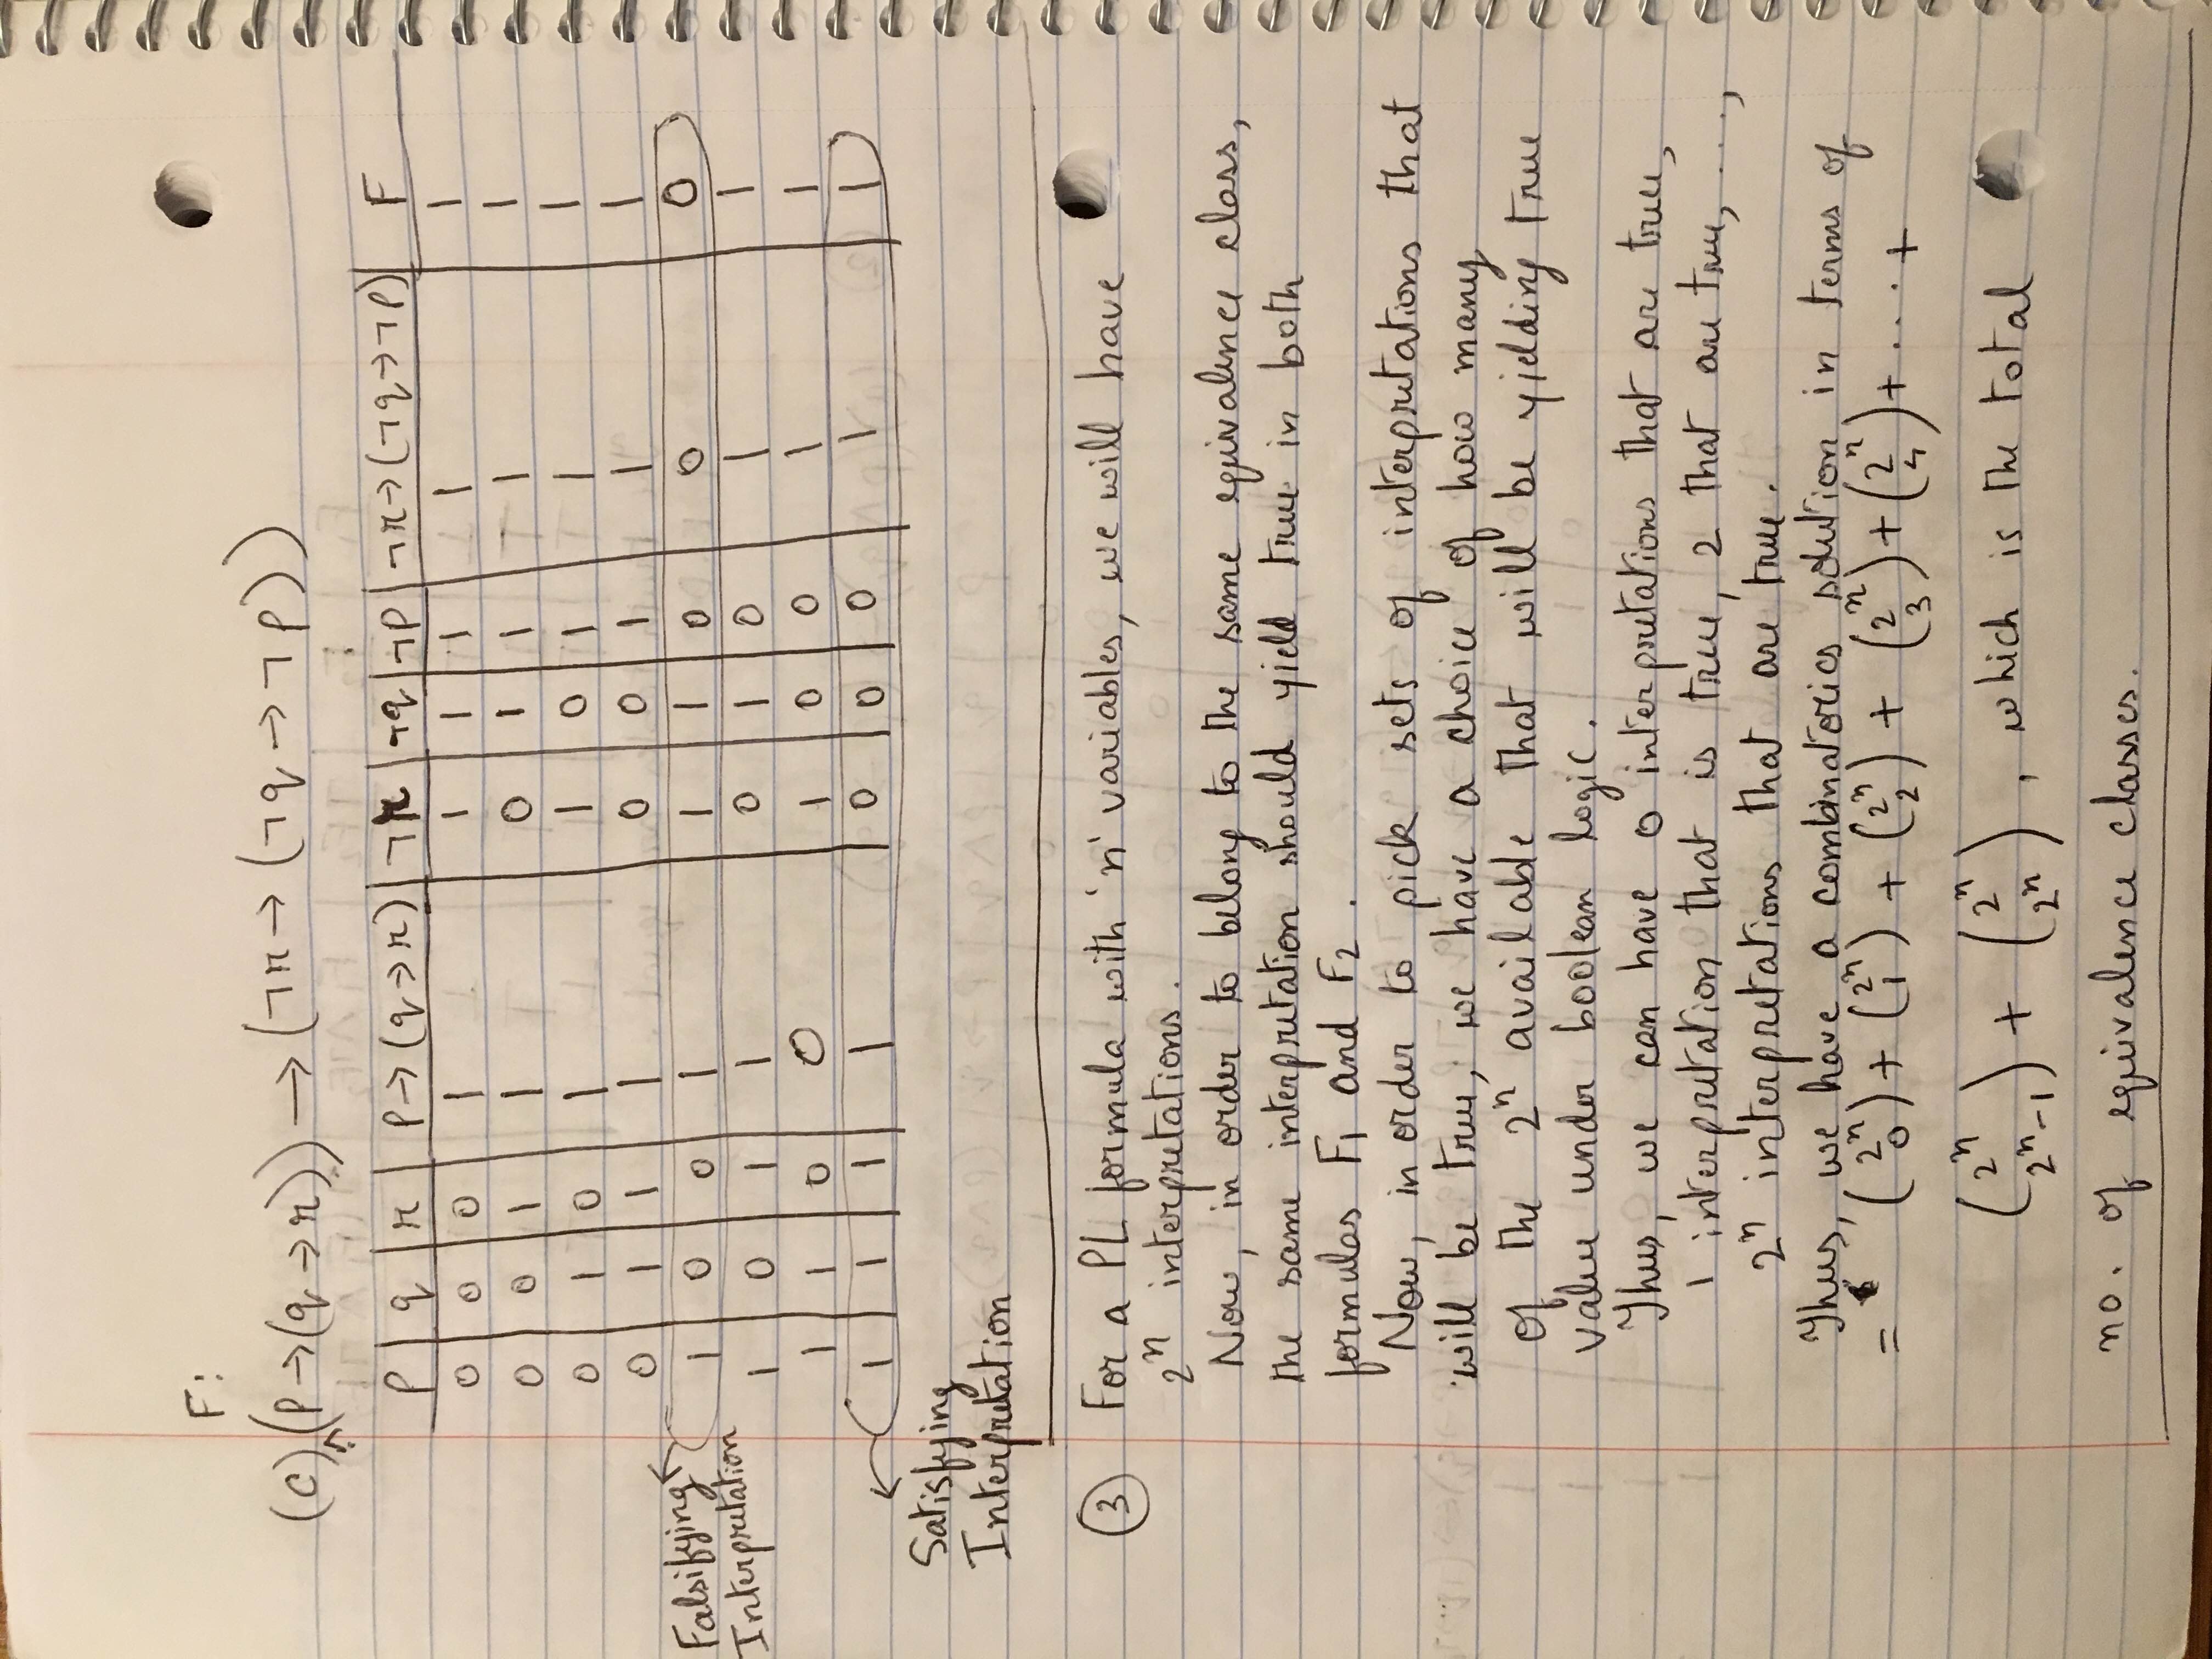 F:
(c) (p→(q→r)) → (¬r→(¬q→¬p))
p | q | r | p→(q→r) | ¬r | ¬q | ¬p | ¬r→(¬q→¬p) | F
0 | 0 | 0 | 1 | 1 | 1 | 1 | 1 | 1
0 | 0 | 1 | 1 | 0 | 1 | 1 | 1 | 1
0 | 1 | 0 | 1 | 1 | 0 | 1 | 1 | 1
0 | 1 | 1 | 1 | 0 | 0 | 1 | 1 | 1
Falsifying
Interpretation
1 | 0 | 0 | 1 | 1 | 1 | 0 | 0 | 0
1 | 0 | 1 | 1 | 0 | 1 | 0 | 1 | 1
1 | 1 | 0 | 0 | 1 | 0 | 0 | 1 | 1
1 | 1 | 1 | 1 | 0 | 0 | 0 | 1 | 1
Satisfying
Interpretation
③ For a PL formula with 'n' variables, we will have
2ⁿ interpretations.
Now, in order to belong to the same equivalence class,
the same interpretation should yield true in both
formulas F₁ and F₂.
Now, in order to pick sets of interpretations that
will be true, we have a choice of how many
of the 2ⁿ available that will be yielding true
value under boolean logic.
Thus, we can have 0 interpretations that are true,
1 interpretation that is true, 2 that are true, ....,
2ⁿ interpretations that are true.
Thus, we have a combinatorics solution in terms of
= (2ⁿ 0) + (2ⁿ 1) + (2ⁿ 2) + (2ⁿ 3) + (2ⁿ 4) + .... +
(2ⁿ 2ⁿ-1) + (2ⁿ 2ⁿ), which is the total
no. of equivalence classes.